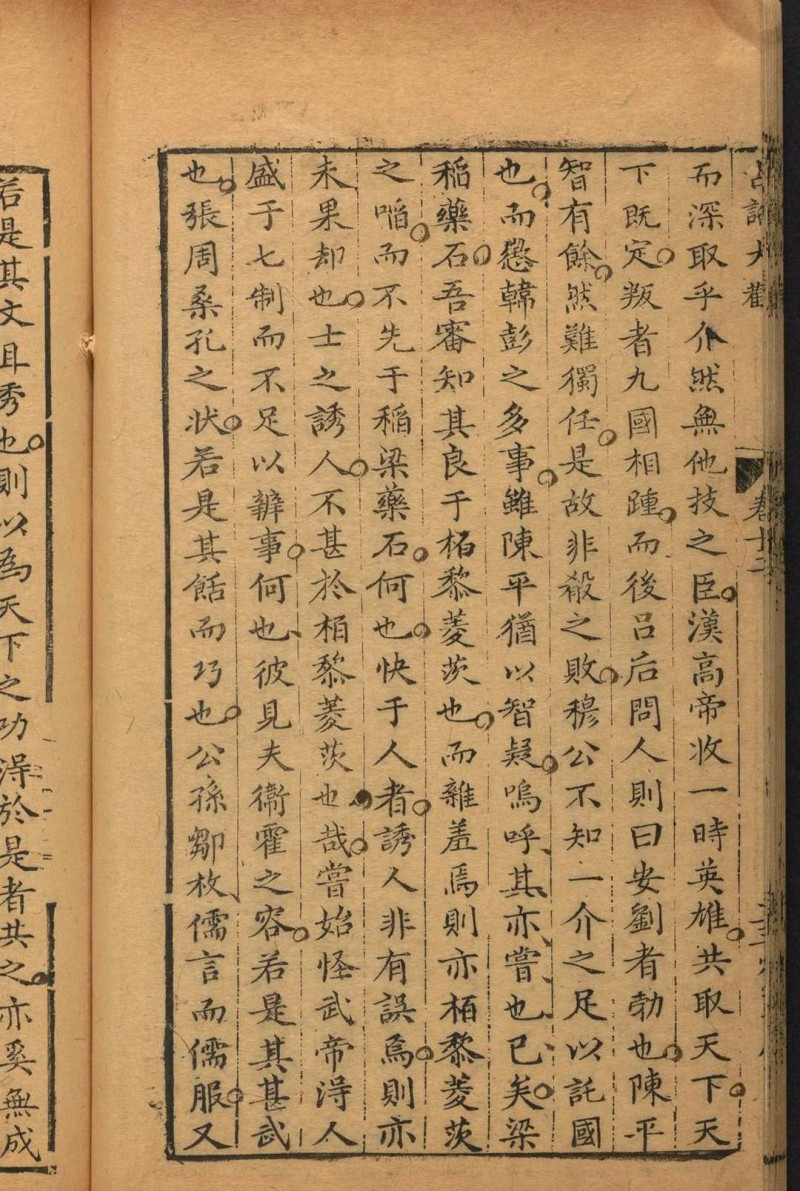 卷十二
而深取乎介然無他技之臣漢高帝收一時英雄共取天下天
下既定叛者九國相踵而後呂后問人則曰安劉者勃也陳平
智有餘然難獨任是故非殽之敗穆公不知一介之足以託國
也而懲韓彭之多事雖陳平猶以智疑嗚呼其亦嘗也已矣梁
稻藥石吾審知其良于柘黎菱茨也而雜羞焉則亦柘黎菱茨
之啗而不先于稻梁藥石何也快于人者誘人非有誤焉則亦
未果却也士之誘人不甚於柘黎菱茨也哉嘗始怪武帝淂人
盛于七制而不足以辦事何也彼見夫衞霍之容若是其甚武
也張周桑孔之狀若是其餂而巧也公孫鄒枚儒言而儒服又
若是其文且秀也則以為天下之功淂於是者共之亦奚無成